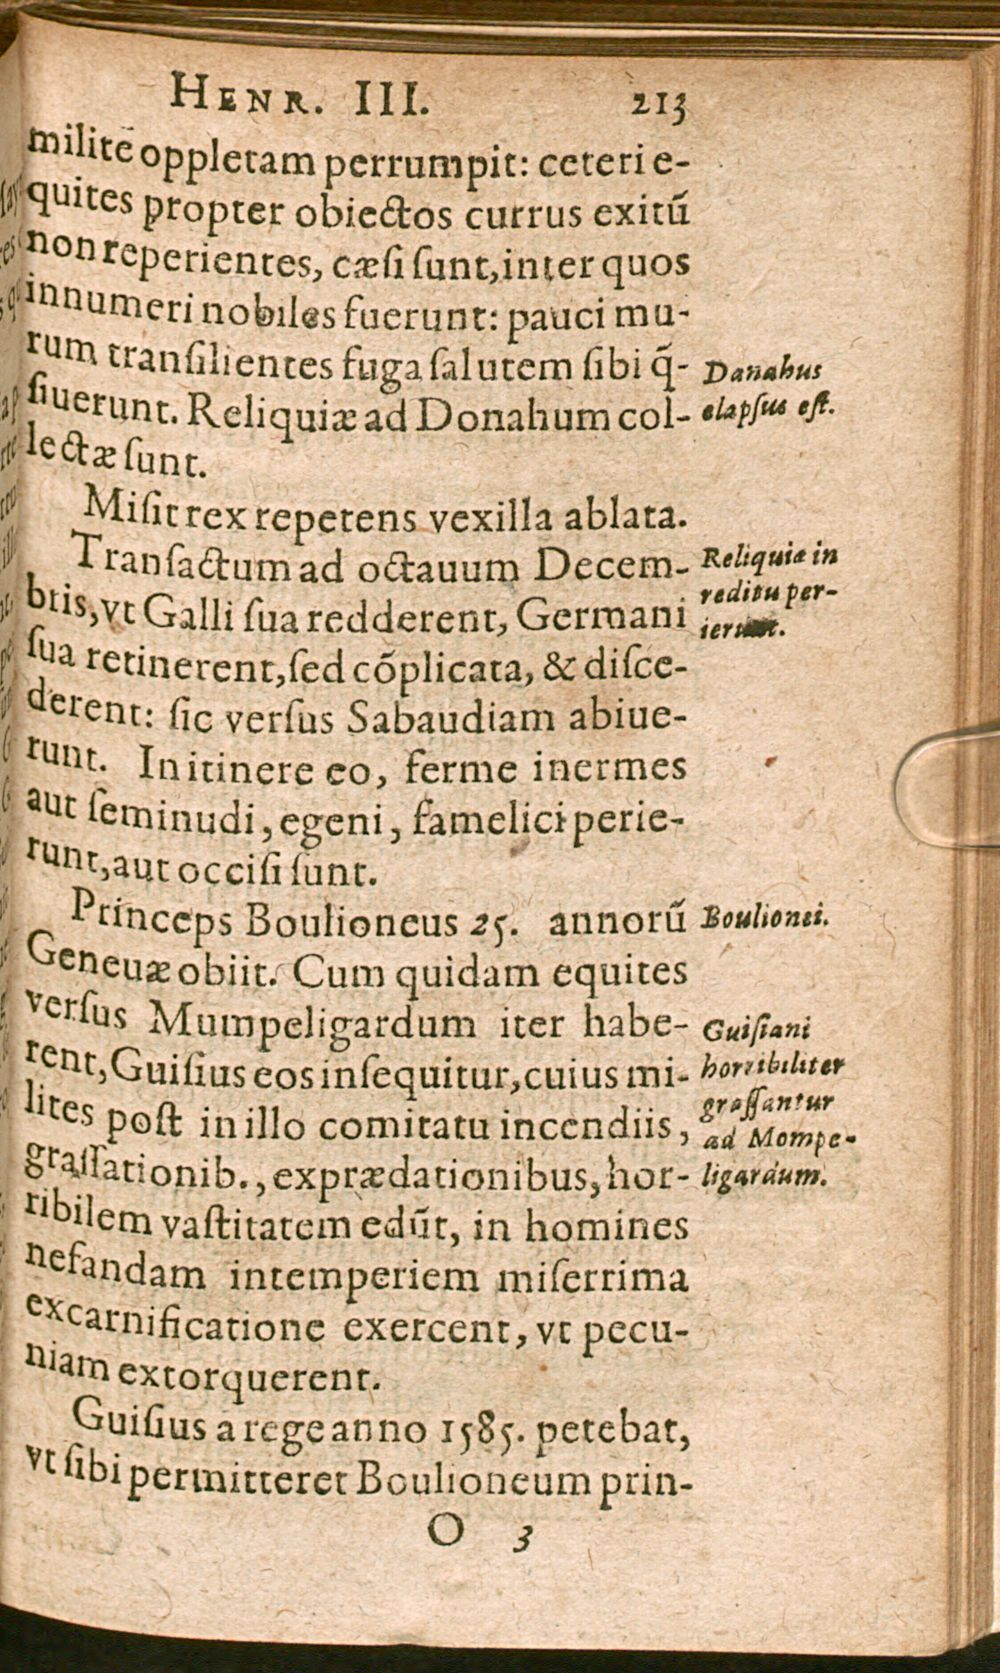 HENR. III. 213
militē oppletam perrumpit: ceteri e-
quites propter obiectos currus exitū
non reperientes, cæsi sunt, inter quos
innumeri nobiles fuerunt: pauci mu-
rum transilientes fuga salutem sibi q̃-
siuerunt. Reliquiæ ad Donahum col-
lectæ sunt.
Danahus
elapsus est.
Misit rex repetens vexilla ablata.
Transactum ad octauum Decem-
bris, vt Galli sua redderent, Germani
sua retinerent, sed cõplicata, & disce-
derent: sic versus Sabaudiam abiue-
runt. In itinere eo, ferme inermes
aut seminudi, egeni, famelici perie-
runt, aut occisi sunt.
Reliquiæ in
reditu per-
ierunt.
Princeps Boulioneus 25. annorū
Geneuæ obiit. Cum quidam equites
versus Mumpeligardum iter habe-
rent, Guisius eos insequitur, cuius mi-
lites post in illo comitatu incendiis,
grassationib., exprædationibus, hor-
ribilem vastitatem edūt, in homines
nefandam intemperiem miserrima
excarnificatione exercent, vt pecu-
niam extorquerent.
Boulionei.
Guisiani
horribiliter
grassantur
ad Mompe-
ligardum.
Guisius a rege anno 1585. petebat,
vt sibi permitteret Boulioneum prin-
O 3